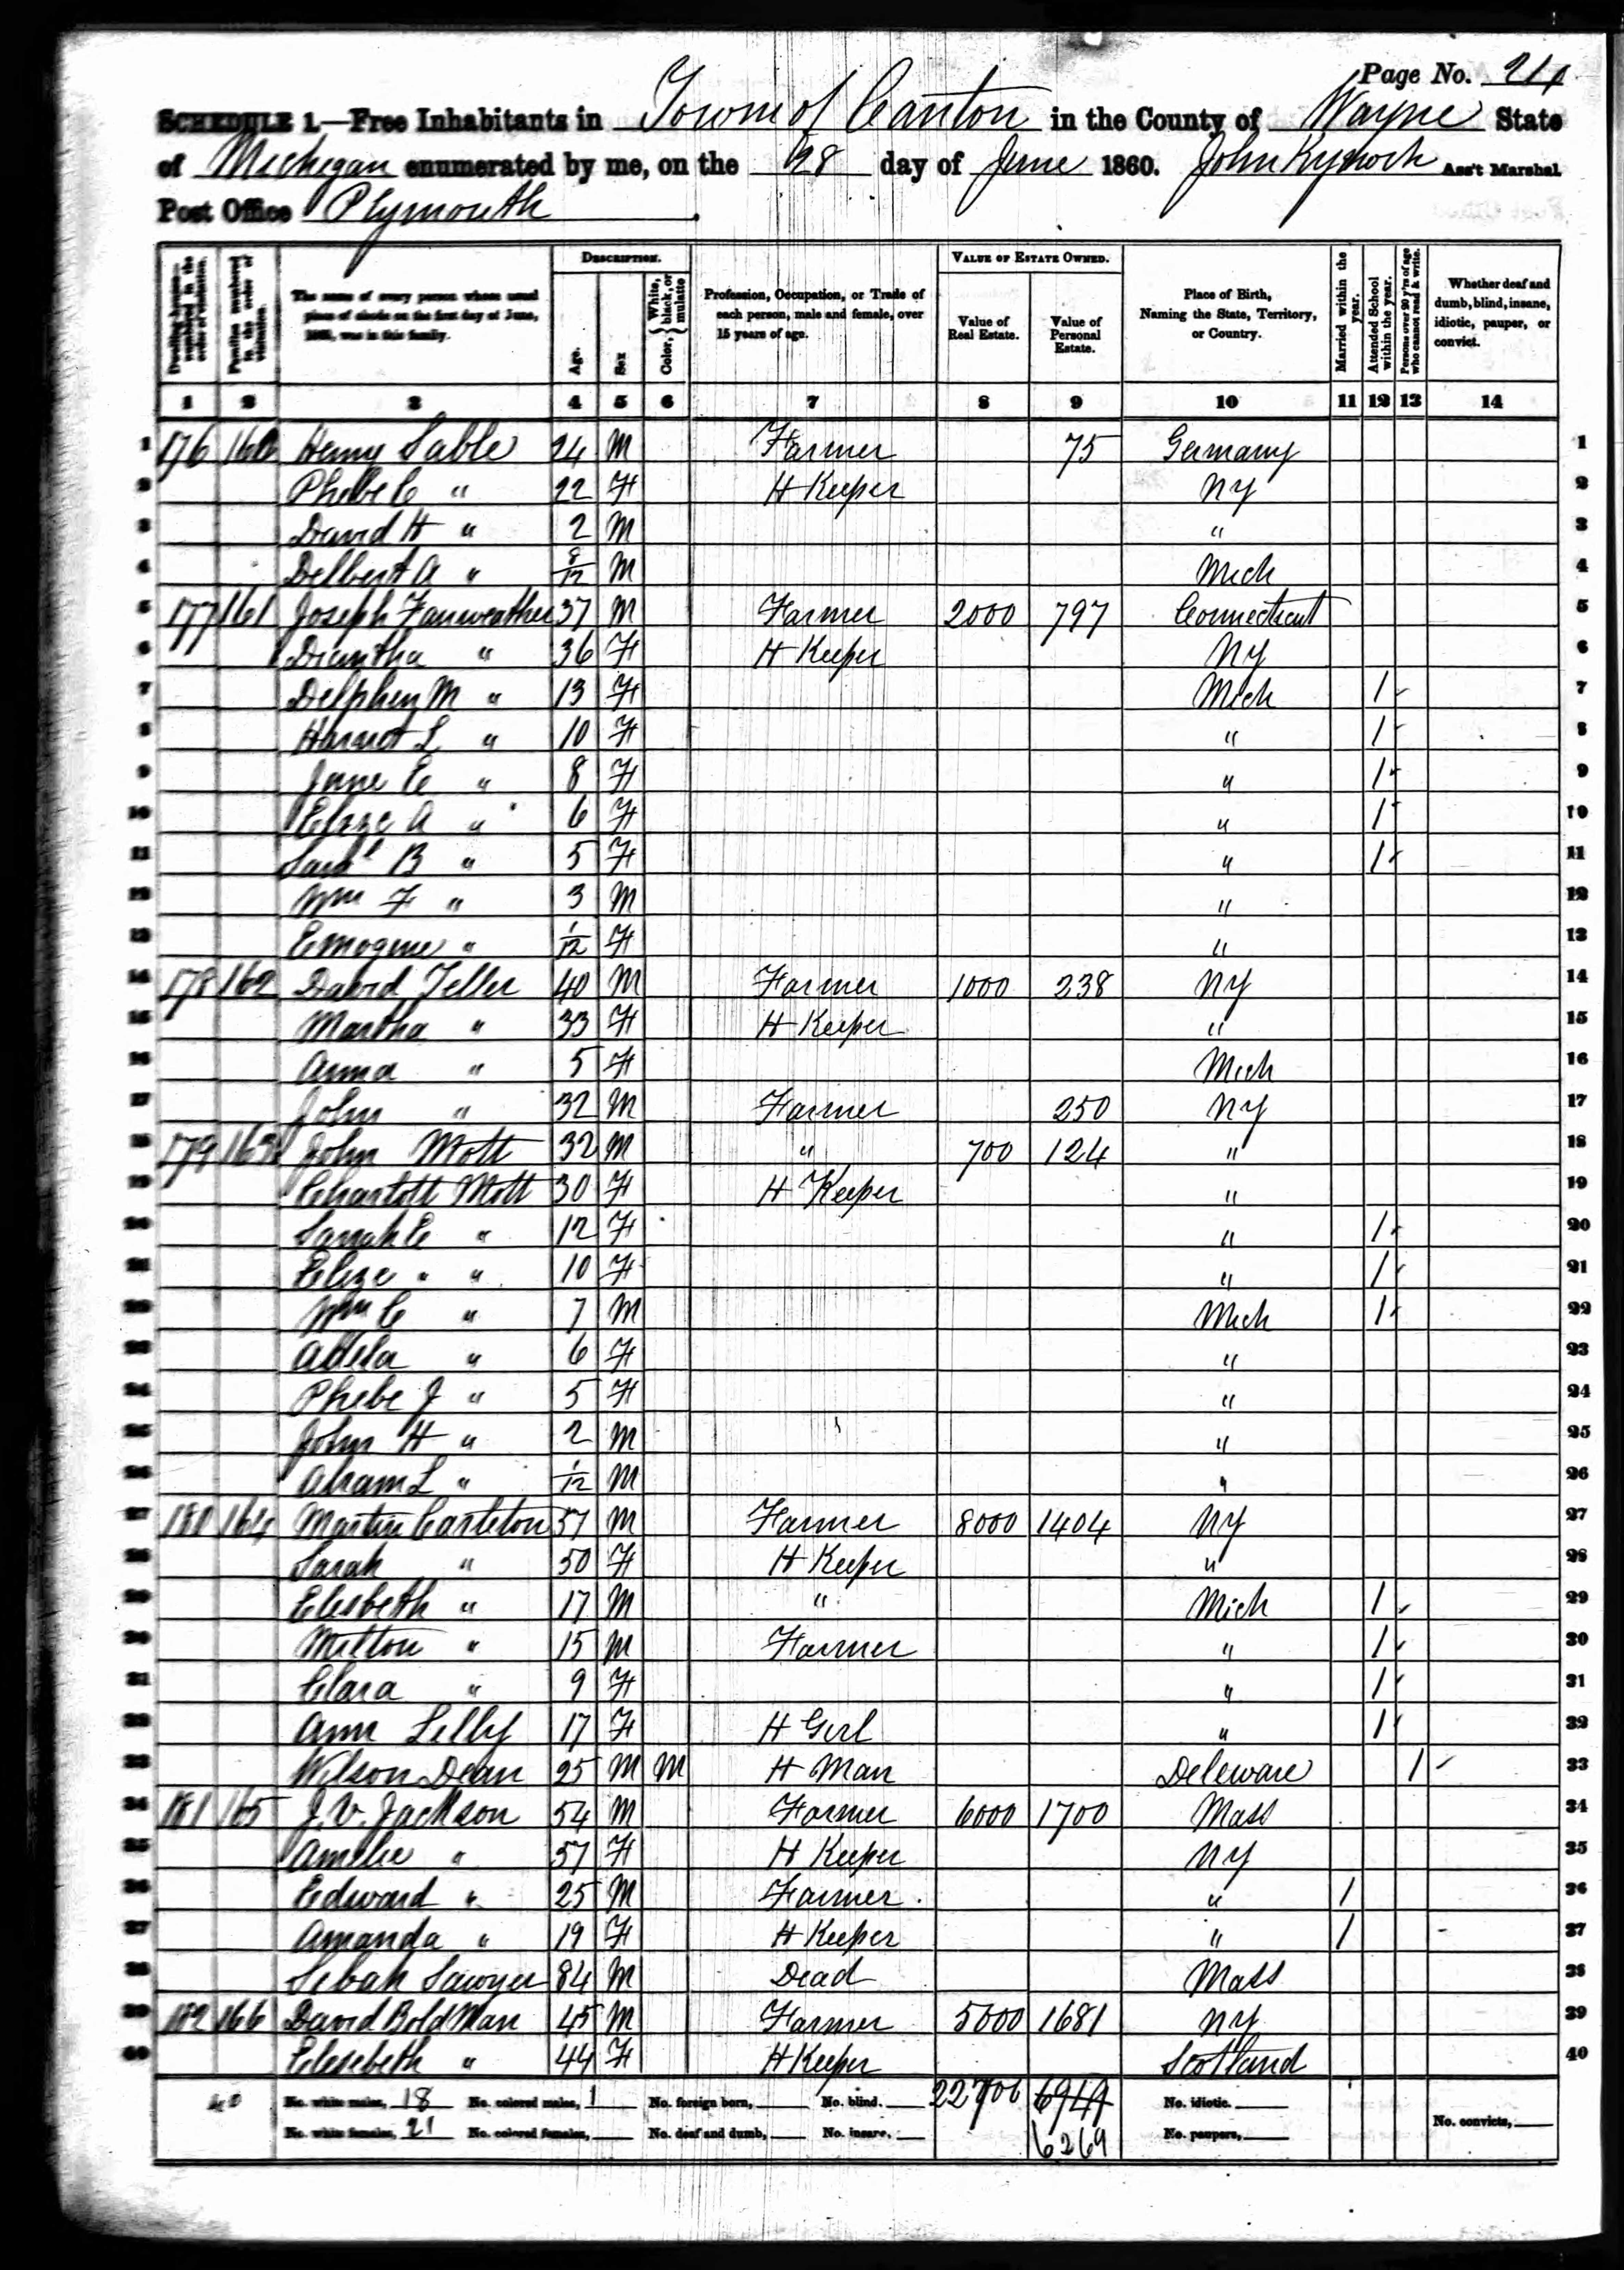 Page No. 24
SCHEDULE 1.—Free Inhabitants in Town of Canton in the County of Wayne State
of Michigan enumerated by me, on the 28 day of June 1860. John Kynoch Ass't Marshal.
Post Office Plymouth
Dwelling-houses—numbered in the order of visitation. | Families numbered in the order of visitation. | The name of every person whose usual place of abode on the first day of June, 1860, was in this family. | DESCRIPTION. Age. Sex Color, White, black, or mulatto | Profession, Occupation, or Trade of each person, male and female, over 15 years of age. | VALUE OF ESTATE OWNED. Value of Real Estate. Value of Personal Estate. | Place of Birth, Naming the State, Territory, or Country. | Married within the year. | Attended School within the year. | Persons over 20 y'rs of age who cannot read & write. | Whether deaf and dumb, blind, insane, idiotic, pauper, or convict.
1 2 3 4 5 6 7 8 9 10 11 12 13 14
1 176 160 Henry Sable 24 M Farmer 75 Germany 1
2 Phebe C " 22 F H Keeper NY 2
3 David H " 2 M " 3
4 Delbert A " 8/12 M Mich 4
5 177 161 Joseph Fairweather 37 M Farmer 2000 797 Connecticut 5
6 Diantha " 36 F H Keeper NY 6
7 Delphen M " 13 F Mich 1 7
8 Harriot L " 10 F " 1 8
9 Jane E " 8 F " 1 9
10 Elize A " 6 F " 1 10
11 B " 5 F " 1 11
12 Wm F " 3 M " 12
13 Emogene " 1/12 F " 13
14 178 162 David Teller 40 M Farmer 1000 238 NY 14
15 Martha " 33 F H Keeper " 15
16 Anna " 5 F Mich 16
17 John " 32 M Farmer 250 NY 17
18 179 163 John Mott 32 M " 700 124 " 18
19 Charlott Mott 30 F H Keeper " 19
20 Sarrah E " 12 F " 1 20
21 Elize " " 10 F " 1 21
22 Wm C " 7 M Mich 1 22
23 Adela " 6 F " 23
24 Phebe J " 5 F " 24
25 John H " 2 M " 25
26 Abram L " 1/12 M " 26
27 180 164 Martin Carleton 57 M Farmer 8000 1404 NY 27
28 Sarah " 50 F H Keeper " 28
29 Elesbeth " 17 M " Mich 1 29
30 Milton " 15 M Farmer " 1 30
31 Clara " 9 F " 1 31
32 Ann Lilly 17 F H Girl " 1 32
33 Wilson Dean 25 M M H Man Deleware 1 33
34 181 165 J. V. Jackson 54 M Farmer 6000 1700 Mass 34
35 Amelie " 57 F H Keeper NY 35
36 Edward " 25 M Farmer " 1 36
37 Amanda " 19 F H Keeper " 1 37
38 Sawyer 84 M Dead Mass 38
39 182 166 David Bold Man 45 M Farmer 5000 1681 NY 39
40 Elesebeth " 44 F H Keeper Scotland 40
40 No. white males, 18 No. colored males, 1 No. foreign born, No. blind. 22700 No. idiotic.
No. white females, 21 No. colored females, No. deaf and dumb, No. insane, 6269 No. paupers, No. convicts,